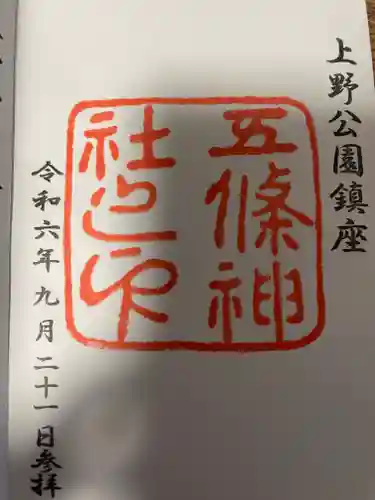 上野公園鎮座
五條神
社之印
令和六年九月二十一日参拝